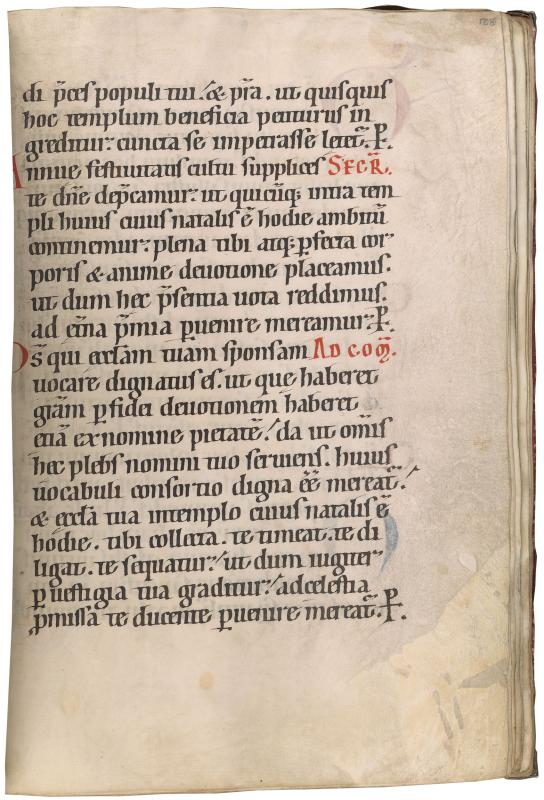 128
di p̄ces populi tui. & p̄ra. ut quisquis
hoc templum beneficia petiturus in
greditur: cuncta se impetrasse letet̄. P.
Annue festiuitatis cultu supplices SECR̄.
te dn̄e dep̄camur: ut quicūq; intra tem
pli huius cuius natalis ē hodie ambitū
continemur: plena tibi atq; p̄fecta cor
poris & anime deuotione placeamus.
ut dum hec p̄sentia uota reddimus.
ad etn̄a p̄mia ꝑuenire mereamur: P.
Ds̄ qui eccl̄am tuam sponsam AD COM̄.
uocare dignatus es. ut que haberet
gr̄am ꝑ fidei deuotionem haberet
etiā ex nomine pietatē. da ut om̄is
hec plebs nomini tuo seruiens. huius
uocabuli consortio digna ēē mereat̄.
& eccl̄a tua in templo cuius natalis ē
hodie. tibi collecta. te timeat. te di
ligat. te sequatur. ut dum iugiter
ꝑ uestigia tua graditur. ad celestia
p̄missa te ducente ꝑuenire mereat̄. P.